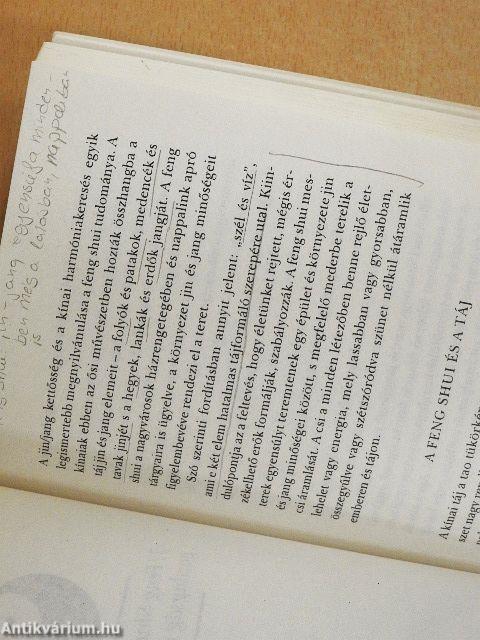 jin jang egyensúlya minden-
ben még a lakásban, nappaliban
is
A jin/jang kettősség és a kínai harmóniakeresés egyik
legismertebb megnyilvánulása a feng shui tudománya. A
kínaiak ebben az ősi művészetben hozták összhangba a
táj jin és jang elemeit – a folyók és patakok, medencék és
tavak jinjét s a hegyek, lankák és erdők jangját. A feng
shui a nagyvárosok házrengetegében és nappalink apró
tárgyaira is ügyelve, a környezet jin és jang minőségeit
figyelembevéve rendezi el a teret.
Szó szerinti fordításban annyit jelent: „szél és víz”,
ami e két elem hatalmas tájformáló szerepére utal. Kiin-
dulópontja az a feltevés, hogy életünket rejtett, mégis ér-
zékelhető erők formálják, szabályozzák. A feng shui mes-
terek egyensúlyt teremtenek egy épület és környezete jin
és jang minőségei között, s megfelelő mederbe terelik a
csi áramlását. A csi a minden létezőben benne rejlő élet-
lehelet vagy energia, mely lassabban vagy gyorsabban,
összegyűlve vagy szétszóródva szünet nélkül átáramlik
emberen és tájon.
A FENG SHUI ÉS A TÁJ
A kínai táj a tao tükörkép
szet nagy
Antikvárium.hu